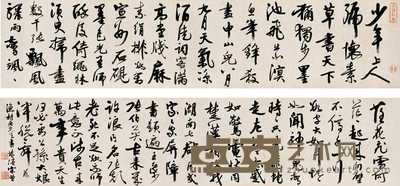 少年上人
號懷素
草書天下
稱獨步墨
池飛出北溟
魚筆鋒殺
盡中山兔八月
九月天氣涼
酒徒詞客滿
高堂牋麻
素絹排數廂
宣州石硯
墨色光吾師
醉後倚繩床
須臾掃盡
數千張飄風
驟雨驚颯颯
落花飛雪何
茫茫起來向壁
不停手一行
數字大如斗怳怳
如聞神鬼驚
時時只見龍
蛇走左盤右蹙
如驚電狀同
楚漢相攻戰
湖南七郡凡幾家
家家屏障
書題遍王逸少
張伯英古來幾
許浪得名張顛
老死不足數我師
此義不師古古來
萬事貴天生
何必要公孫大娘
渾脫舞